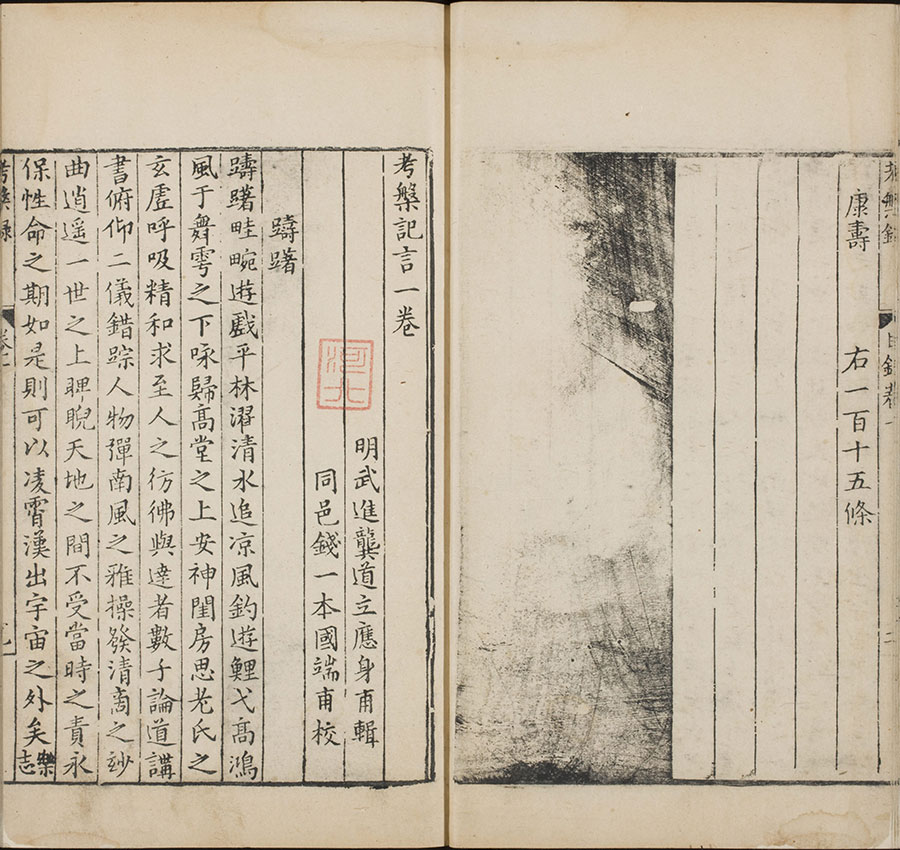 康壽
右一百十五條
考槃記言一卷
明武進龔道立應身甫輯
同邑錢一本國端甫校
躊躇
躊躇畦畹遊戲平林濯清水追凉風釣遊鯉弋髙鴻
風于舞雩之下咏歸髙堂之上安神閨房思老氏之
玄虛呼吸精和求至人之彷彿與達者數子論道講
書俯仰二儀錯踪人物彈南風之雅操發清商之玅
曲逍遥一世之上睥睨天地之間不受當時之責永
保性命之期如是則可以凌霄漢出宇宙之外矣樂志
考槃錄